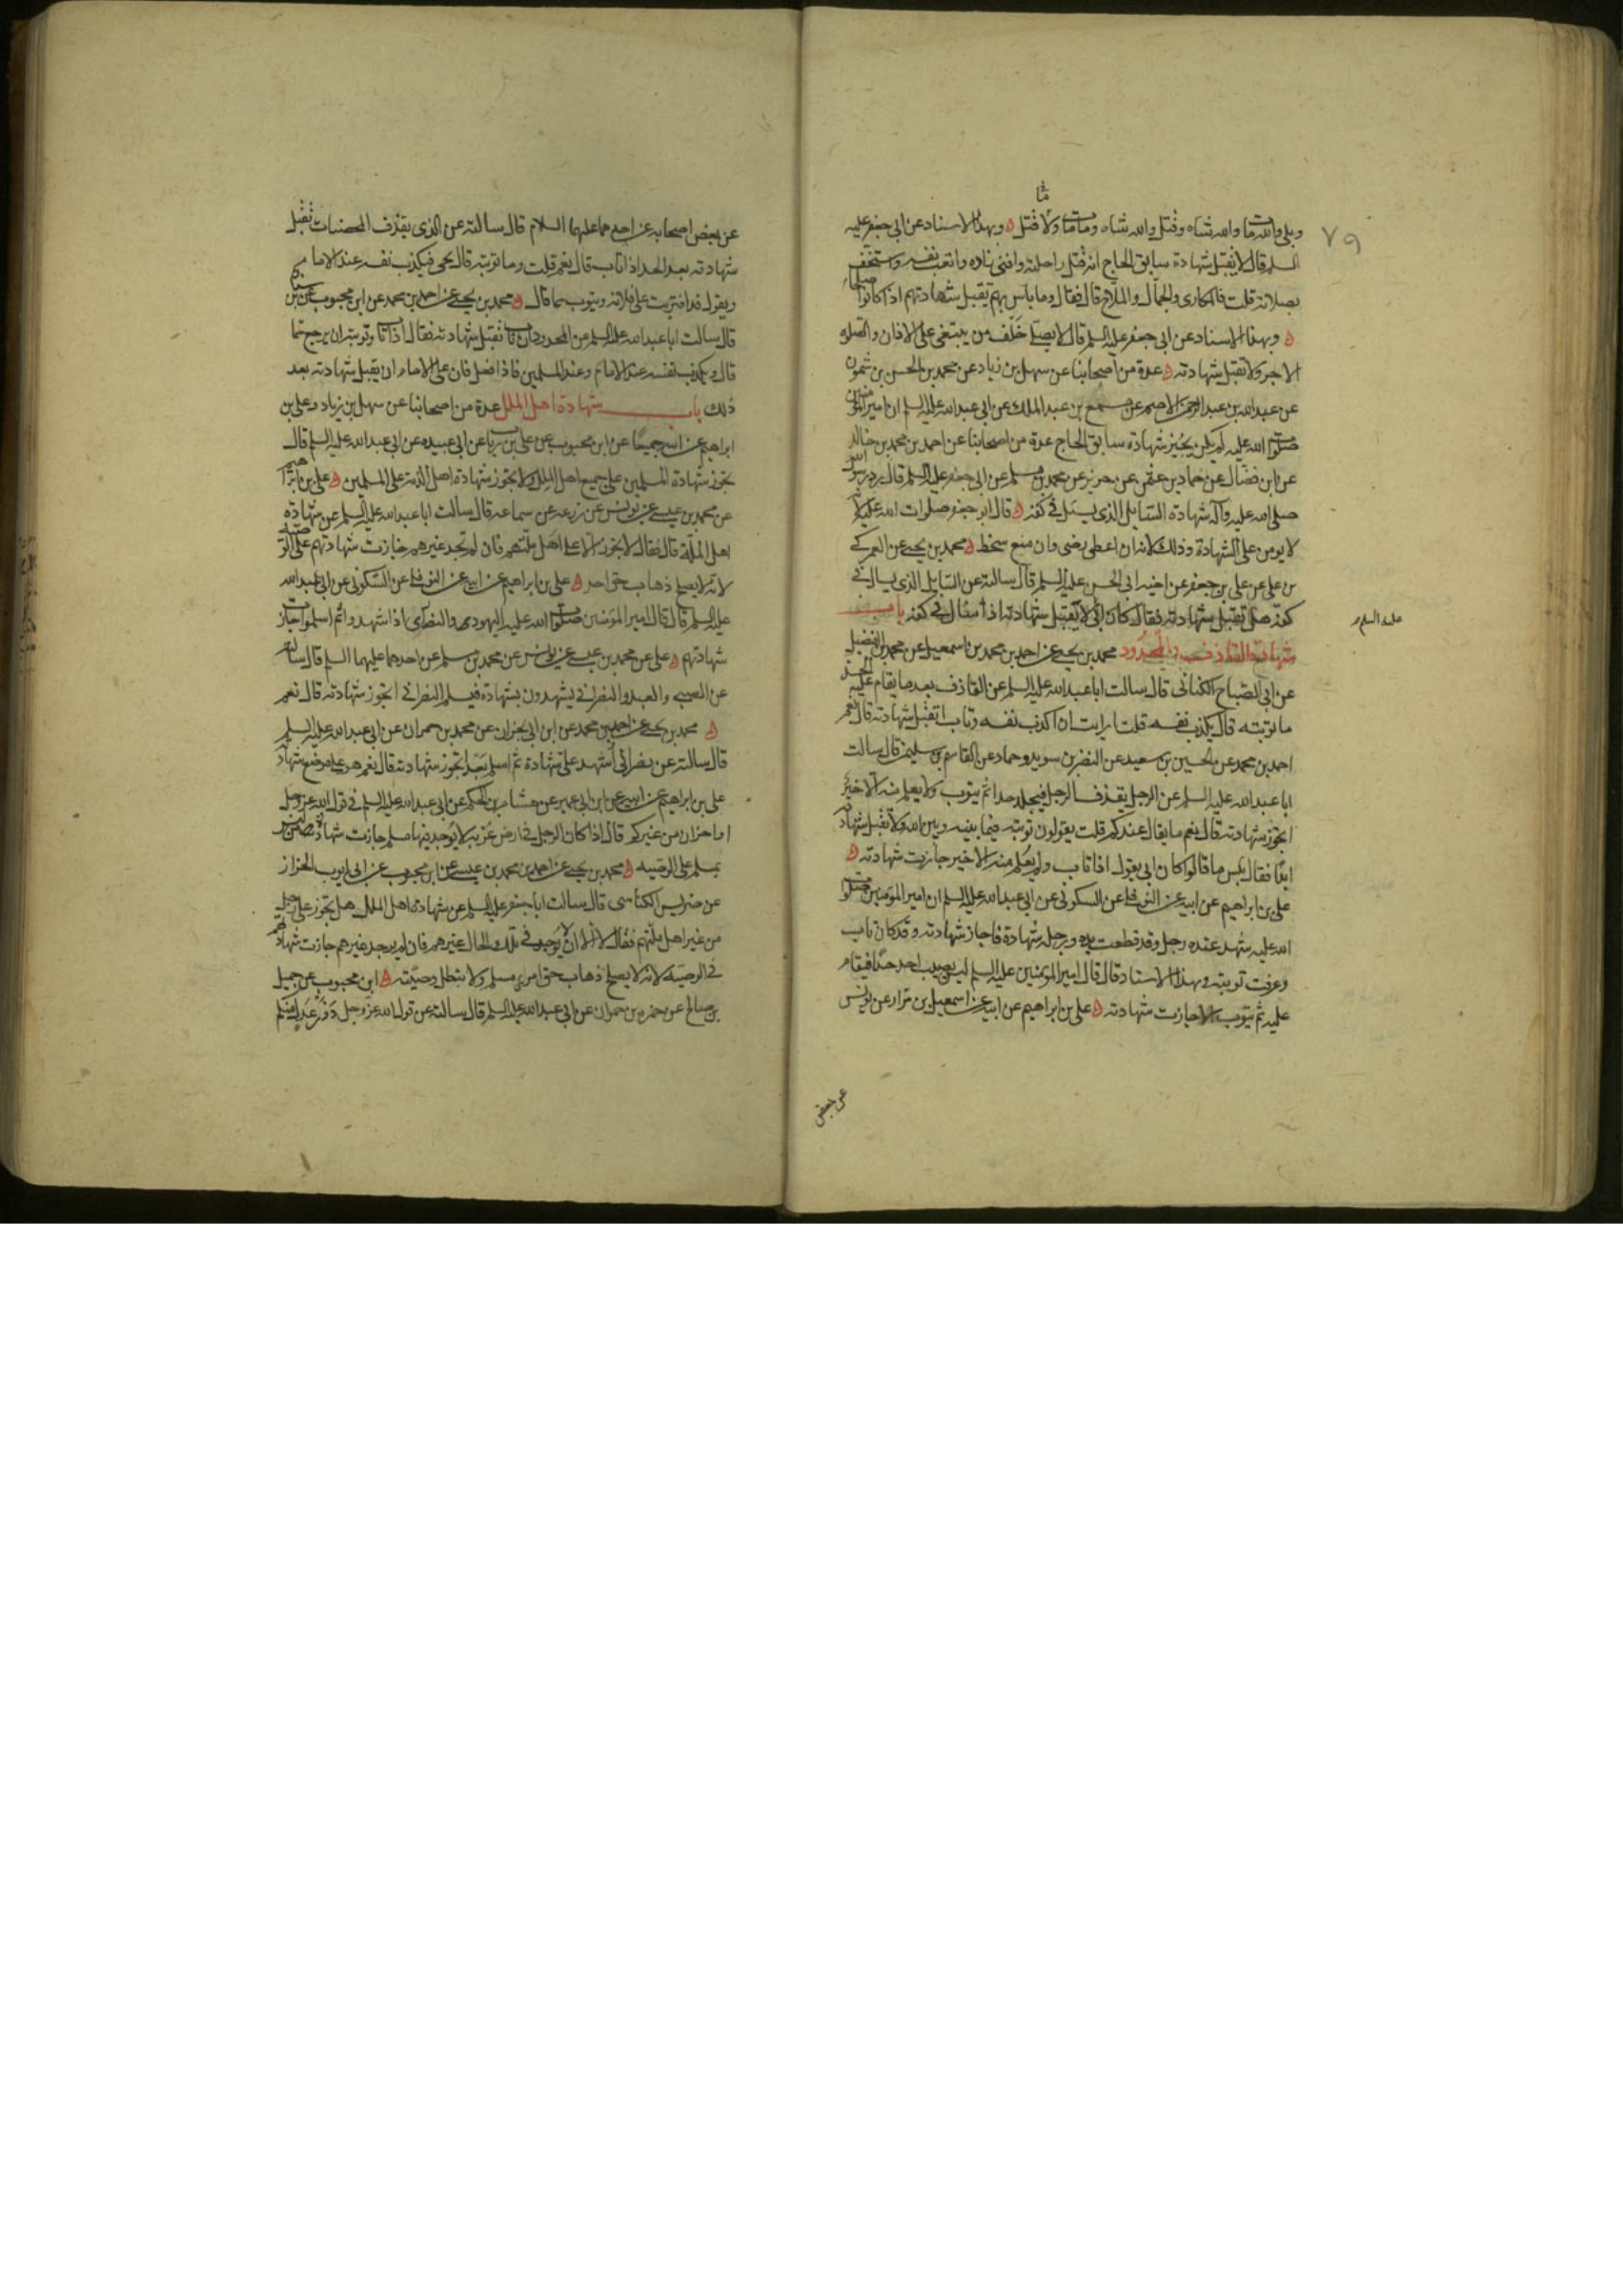 ما
٧٩
وبلى والله مات والله شاه وقتل والله شاه وما مات ولا قتل وبهذا الاسناد عن ابى جعفر عليه
السلم قال لا يقبل شهادة سابق الحاج انه قتل راحلته وافنى زاده واتعب نفسه واستخف
بصلاته قلت فالمكارى والجمال والملاح قال فقال وما بأس بهم يقبل شهادتهم اذا كانوا صلحاء
وبهذا الاسناد عن ابى جعفر عليه السلم قال لا يصلى خلف من يبتغى على الاذان والصلوة
الاجر ولا تقبل شهادته عدة من اصحابنا عن سهل بن زياد عن محمد بن الحسن بن شمون
عن عبد الله بن عبد الرحمن الاصم عن مسمع بن عبد الملك عن ابى عبد الله عليه السلم ان امير المؤمنين
صلوات الله عليه لم يكن يجيز شهادة سابق الحاج عدة من اصحابنا عن احمد بن محمد بن خالد
عن ابن فضال عن حماد بن عثمن عن حريز عن محمد بن مسلم عن ابى جعفر عليه السلم قال رد رسول الله
صلى الله عليه وآله شهادة السايل الذى يسئل فى كفه قال ابو جعفر صلوات الله عليه لانه
لا يومن على الشهادة وذلك لانه ان اعطى رضى وان منع سخط محمد بن يحيى عن العمركى
بن على عن على بن جعفر عن اخيه ابى الحسن عليه السلم قال سالته عن السايل الذى يسال فى
كفه هل تقبل شهادته فقال كان ابى لا يقبل شهادته اذا سال فى كفه باب
عليه السلم
شهادة القاذف والمحدود محمد بن يحيى عن احمد بن محمد بن اسمعيل عن محمد بن الفضيل
عن ابى الصباح الكنانى قال سالت ابا عبد الله عليه السلم عن القاذف بعد ما يقام عليه الحد
ما توبته قال يكذب نفسه قلت ارايت ان اكذب نفسه وتاب اتقبل شهادته قال نعم
احمد بن محمد عن الحسين بن سعيد عن النضر بن سويد وحماد عن القاسم بن سليمن قال سالت
ابا عبد الله عليه السلم عن الرجل يقذف الرجل فيجلد حدا ثم يتوب ولا يعلم منه الا خير
اتجوز شهادته قال نعم ما يقال عندكم قلت يقولون توبته فيما بينه وبين الله ولا تقبل شهادته
ابدا فقال بئس ما قالوا كان ابى يقول اذا تاب ولم يعلم منه الا خير جازت شهادته
على بن ابراهيم عن ابيه عن النوفلى عن السكونى عن ابى عبد الله عليه السلم ان امير المؤمنين صلوات
الله عليه شهد عنده رجل وقد قطعت يده ورجله شهادة فاجاز شهادته وقد كان تاب
وعرفت توبته وبهذا الاسناد قال قال امير المؤمنين عليه السلم ليس يصيب احد حدا فيقام
عليه ثم يتوب الا جازت شهادته على بن ابراهيم عن ابيه عن اسمعيل بن مرار عن يونس
عن بعض
عن بعض اصحابه عن احدهما عليهما السلام قال سالته عن الذى يقذف المحصنات تقبل
شهادته بعد الحد اذا تاب قال نعم قلت وما توبته قال يجى فيكذب نفسه عند الامام
ويقول قد افتريت على فلانة ويتوب مما قال محمد بن يحيى عن احمد بن محمد عن ابن محبوب عن ابن سنان
قال سالت ابا عبد الله عليه السلم عن المحدود ان تاب تقبل شهادته فقال اذا تاب وتوبته ان يرجع مما
قال ويكذب نفسه عند الامام وعند المسلمين فاذا فعل فان على الامام ان يقبل شهادته بعد
ذلك باب شهادة اهل الملل عدة من اصحابنا عن سهل بن زياد وعلى بن
ابراهيم عن ابيه جميعا عن ابن محبوب عن على بن رياب عن ابى عبيده عن ابى عبد الله عليه السلم قال
تجوز شهادة المسلمين على جميع اهل الملل ولا تجوز شهادة اهل الذمة على المسلمين على بن ابراهيم
عن محمد بن عيسى عن يونس عن زرعه عن سماعه قال سالت ابا عبد الله عليه السلم عن شهادة
اهل الملة قال فقال لا يجوز الا على اهل ملتهم فان لم تجد غيرهم جازت شهادتهم على الوصية
لانه لا يصلح ذهاب حق احد على بن ابراهيم عن ابيه عن النوفلى عن السكونى عن ابى عبد الله
عليه السلم قال قال امير المؤمنين صلوات الله عليه اليهودى والنصرانى اذا شهدوا ثم اسلموا جازت
شهادتهم على عن محمد بن عيسى عن يونس عن محمد بن مسلم عن احدهما عليهما السلم قال سالته
عن الصبى والعبد والنصرانى يشهدون بشهادة فيسلم النصرانى اتجوز شهادته قال نعم
محمد بن يحيى عن احمد بن محمد عن ابن ابى نجران عن محمد بن حمران عن ابى عبد الله عليه السلم
قال سالته عن نصرانى أشهد على شهادة ثم اسلم بعد اتجوز شهادته قال نعم هو على موضع شهادته
على بن ابراهيم عن ابيه عن ابن ابى عمير عن هشام بن الحكم عن ابى عبد الله عليه السلم فى قول الله عز وجل
او اخران من غيركم قال اذا كان الرجل فى ارض غربة لا يوجد فيها مسلم جازت شهادة من ليس
بمسلم على الوصية محمد بن يحيى عن احمد بن محمد بن عيسى عن ابن محبوب عن ابى ايوب الخزاز
عن ضريس الكناسى قال سالت ابا جعفر عليه السلم عن شهادة اهل الملل هل تجوز على رجل
من غير اهل ملتهم فقال لا الا ان لا يوجد فى تلك الحال غيرهم فان لم يوجد غيرهم جازت شهادتهم
فى الوصية لانه لا يصلح ذهاب حق امرئ مسلم ولا تبطل وصيته ابن محبوب عن جميل
بن صالح عن حمزه بن حمران عن ابى عبد الله عليه السلم قال سالته عن قول الله عز وجل ذوا عدل منكم